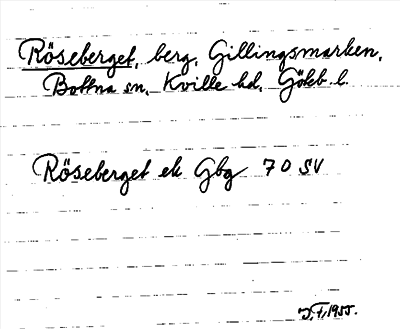 Röseberget, berg, Gillingsmarken,
Bottna sn, Kville hd, Göteb. l.
Röseberget ek Gbg 70 SV
J.F. 1955.